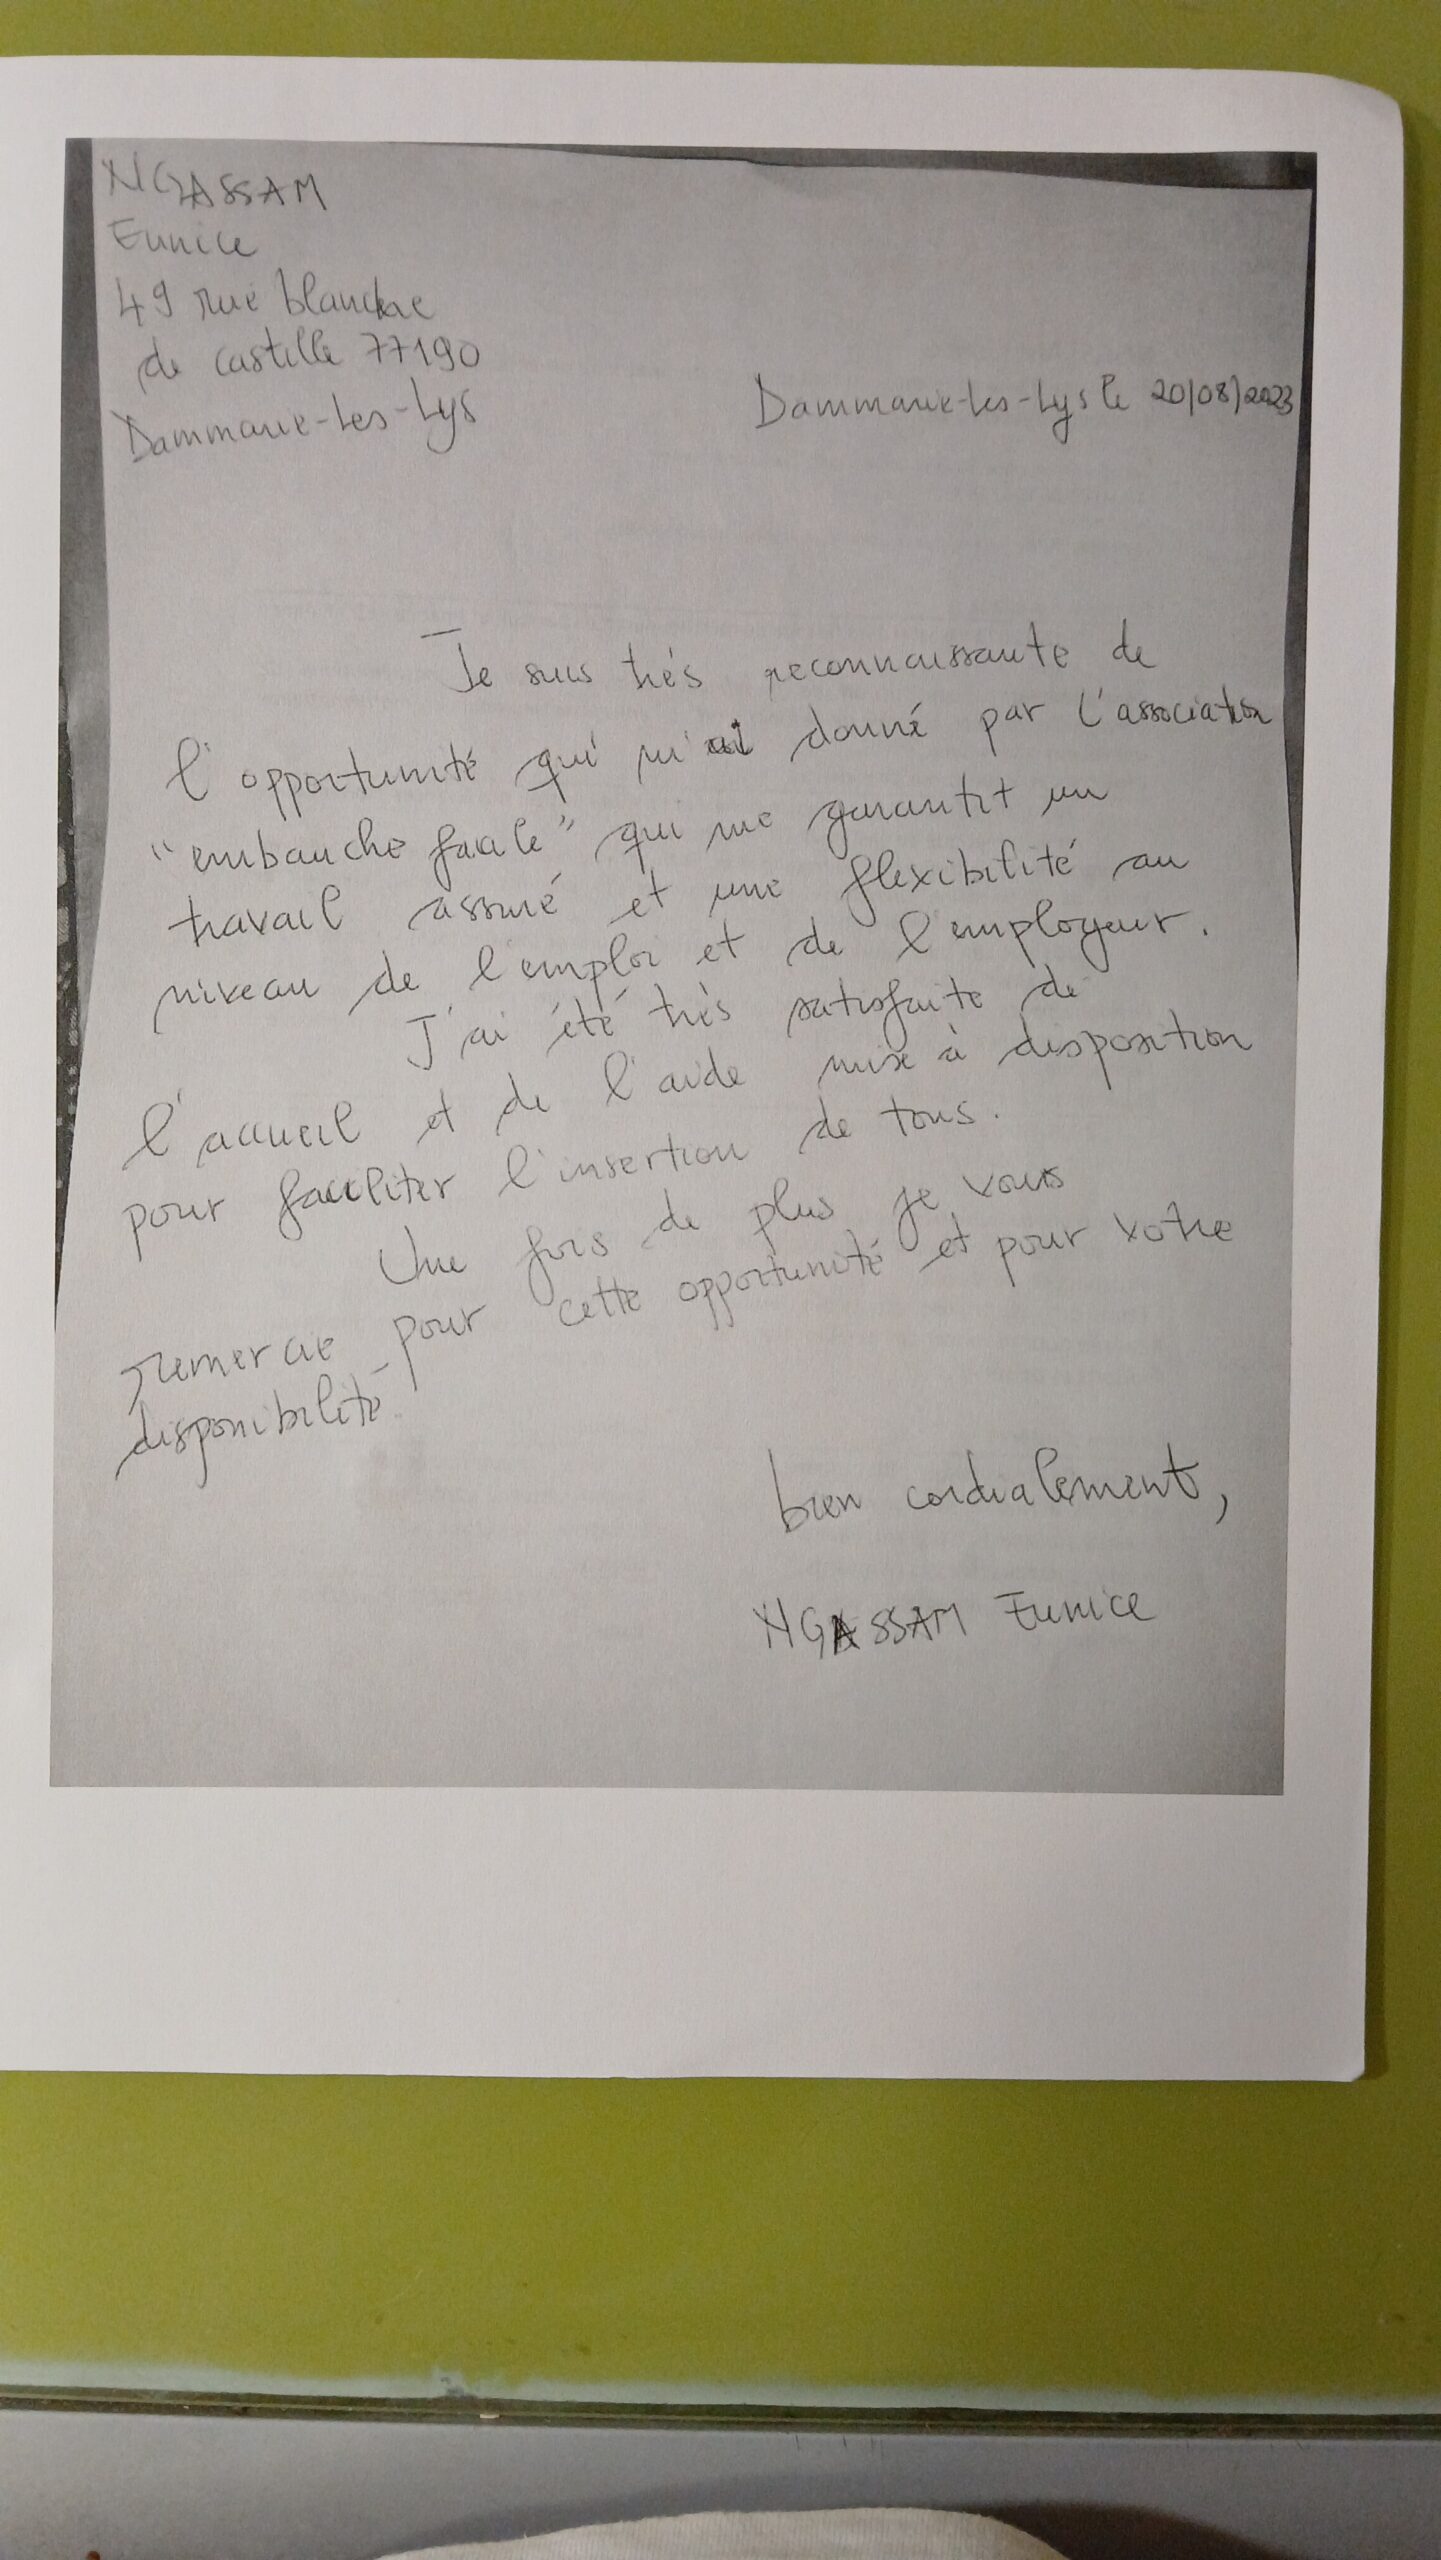 NGASSAM
Eunice
49 rue blanche
de castille 77190
Dammarie-Les-Lys
Dammarie-les-Lys le 20/08/2023
Je suis très reconnaissante de
l'opportunité qui m'ai donné par l'association
"embauche facile" qui me garantit un
travail assuré et une flexibilité au
niveau de l'emploi et de l'employeur.
J'ai été très satisfaite de
l'accueil et de l'aide mise à disposition
pour faciliter l'insertion de tous.
Une fois de plus je vous
remercie pour cette opportunité et pour votre
disponibilité.
bien cordialement,
NGASSAM Eunice